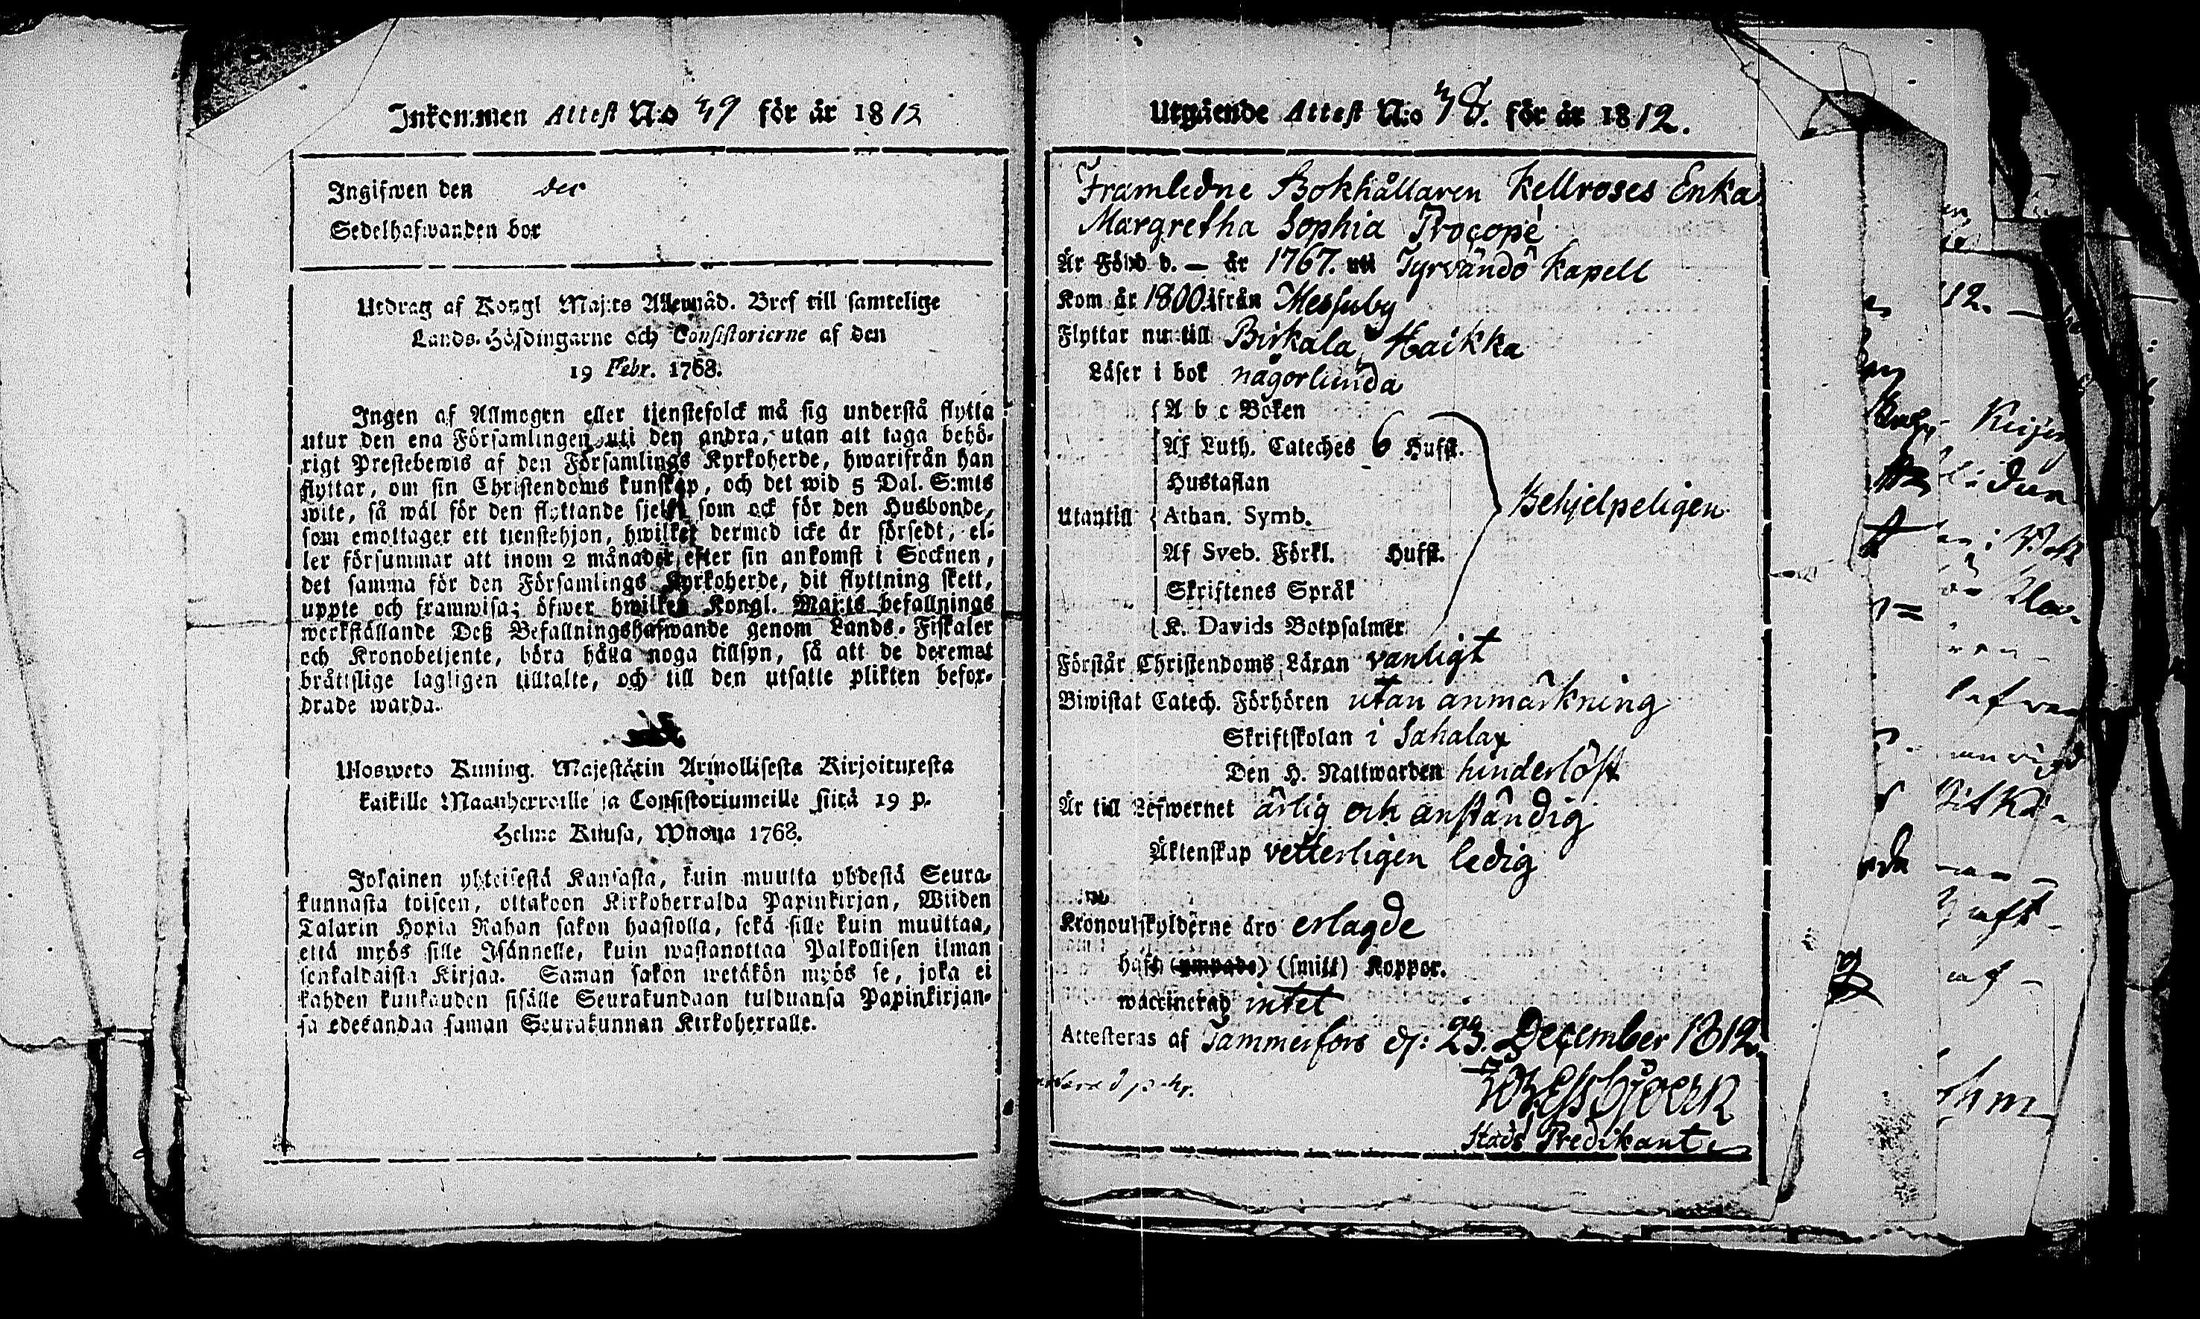 Inkommen Attest N:o 39 för år 1812
Ingifwen den der
Sedelhafwanden bor
Utdrag af Kongl Maj:ts Allernåd. Bref till samtelige
Lands-Höfdingarne och Consistorierne af den
19 Febr. 1768.
Ingen af Allmogen eller tjenstefolck må sig understå flytta
utur den ena Församlingen uti den andra, utan att taga behö-
rigt Prestebewis af den Församlings Kyrkoherde, hwarifrån han
flyttar, om sin Christendoms kunskap, och det wid 5 Dal. S:mts
wite, så wäl för den flyttande sjelf som ock för den Husbonde,
som emottager ett tjenstehjon, hwilket dermed icke är försedt, el-
ler försummar att inom 2 månader efter sin ankomst i Socknen,
det samma för den Församlings Kyrkoherde, dit flyttning skett,
uppte och framwisa; öfwer hwilket Kongl. Maj:ts befallnings
werkställande Deß Befallningshafwande genom Lands-Fiskaler
och Kronobetjente, böra hålla noga tillsyn, så att de deremot
bråttslige lagligen tilltalte, och till den utsatte plikten befor-
drade warda.
Ulosweto Kuning. Majestätin Armollisesta Kirjoituxesta
kaikille Maanherroille ja Consistoriumeille siitä 19 p.
Helme Kuusa, Wuonna 1768.
Jokainen yhteisestä Kansasta, kuin muutta yhdestä Seura-
kunnasta toiseen, ottakoon Kirkoherralda Papinkirjan, Wiiden
Talarin Hopia Rahan sakon haastolla, sekä sille kuin muuttaa,
että myös sille Isännelle, kuin wastanottaa Palkollisen ilman
senkaldaista Kirjaa. Saman sakon wetäkön myös se, joka ei
kahden kuukauden sisälle Seurakundaan tulduansa Papinkirjan-
sa edeskandaa saman Seurakunnan Kirkoherralle.
Utgående Attest N:o 38. för år 1812.
Framledne Bokhållaren Kellroses Enka
Margretha Sophia Procopé
Är Född d. — år 1767. uti Tyrvändö Kapell
Kom år 1800. ifrån Messuby
Flyttar nu till Birkala, Haikka
Läser i bok någorlunda
A b c Boken
Af Luth. Cateches 6 Hufst.
Hustaflan
Utantill Athan. Symb. Behjelpeligen
Af Sveb. Förkl. Hufst.
Skriftenes Språk
K. Davids Botpsalmer
Förstår Christendoms Läran vanligt
Biwistat Catech. Förhören utan anmärkning
Skriftskolan i Sahalax
Den H. Nattwarden hinderlöst
Är till Lefwernet ärlig och anständig
Äktenskap vetterligen ledig
Kronoutskylderne äro erlagde
haft (ympade) (smitt) Koppor.
waccinerad intet
Attesteras af Tammerfors d: 23. December 1812.
Stads Predikant